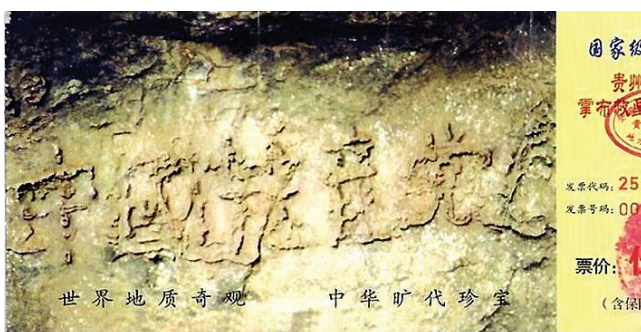 中國共產党亡
世界地质奇观 中华旷代珍宝
国家级
贵州
掌布
发票代码: 25
发票号码: 00
票价:
(含保